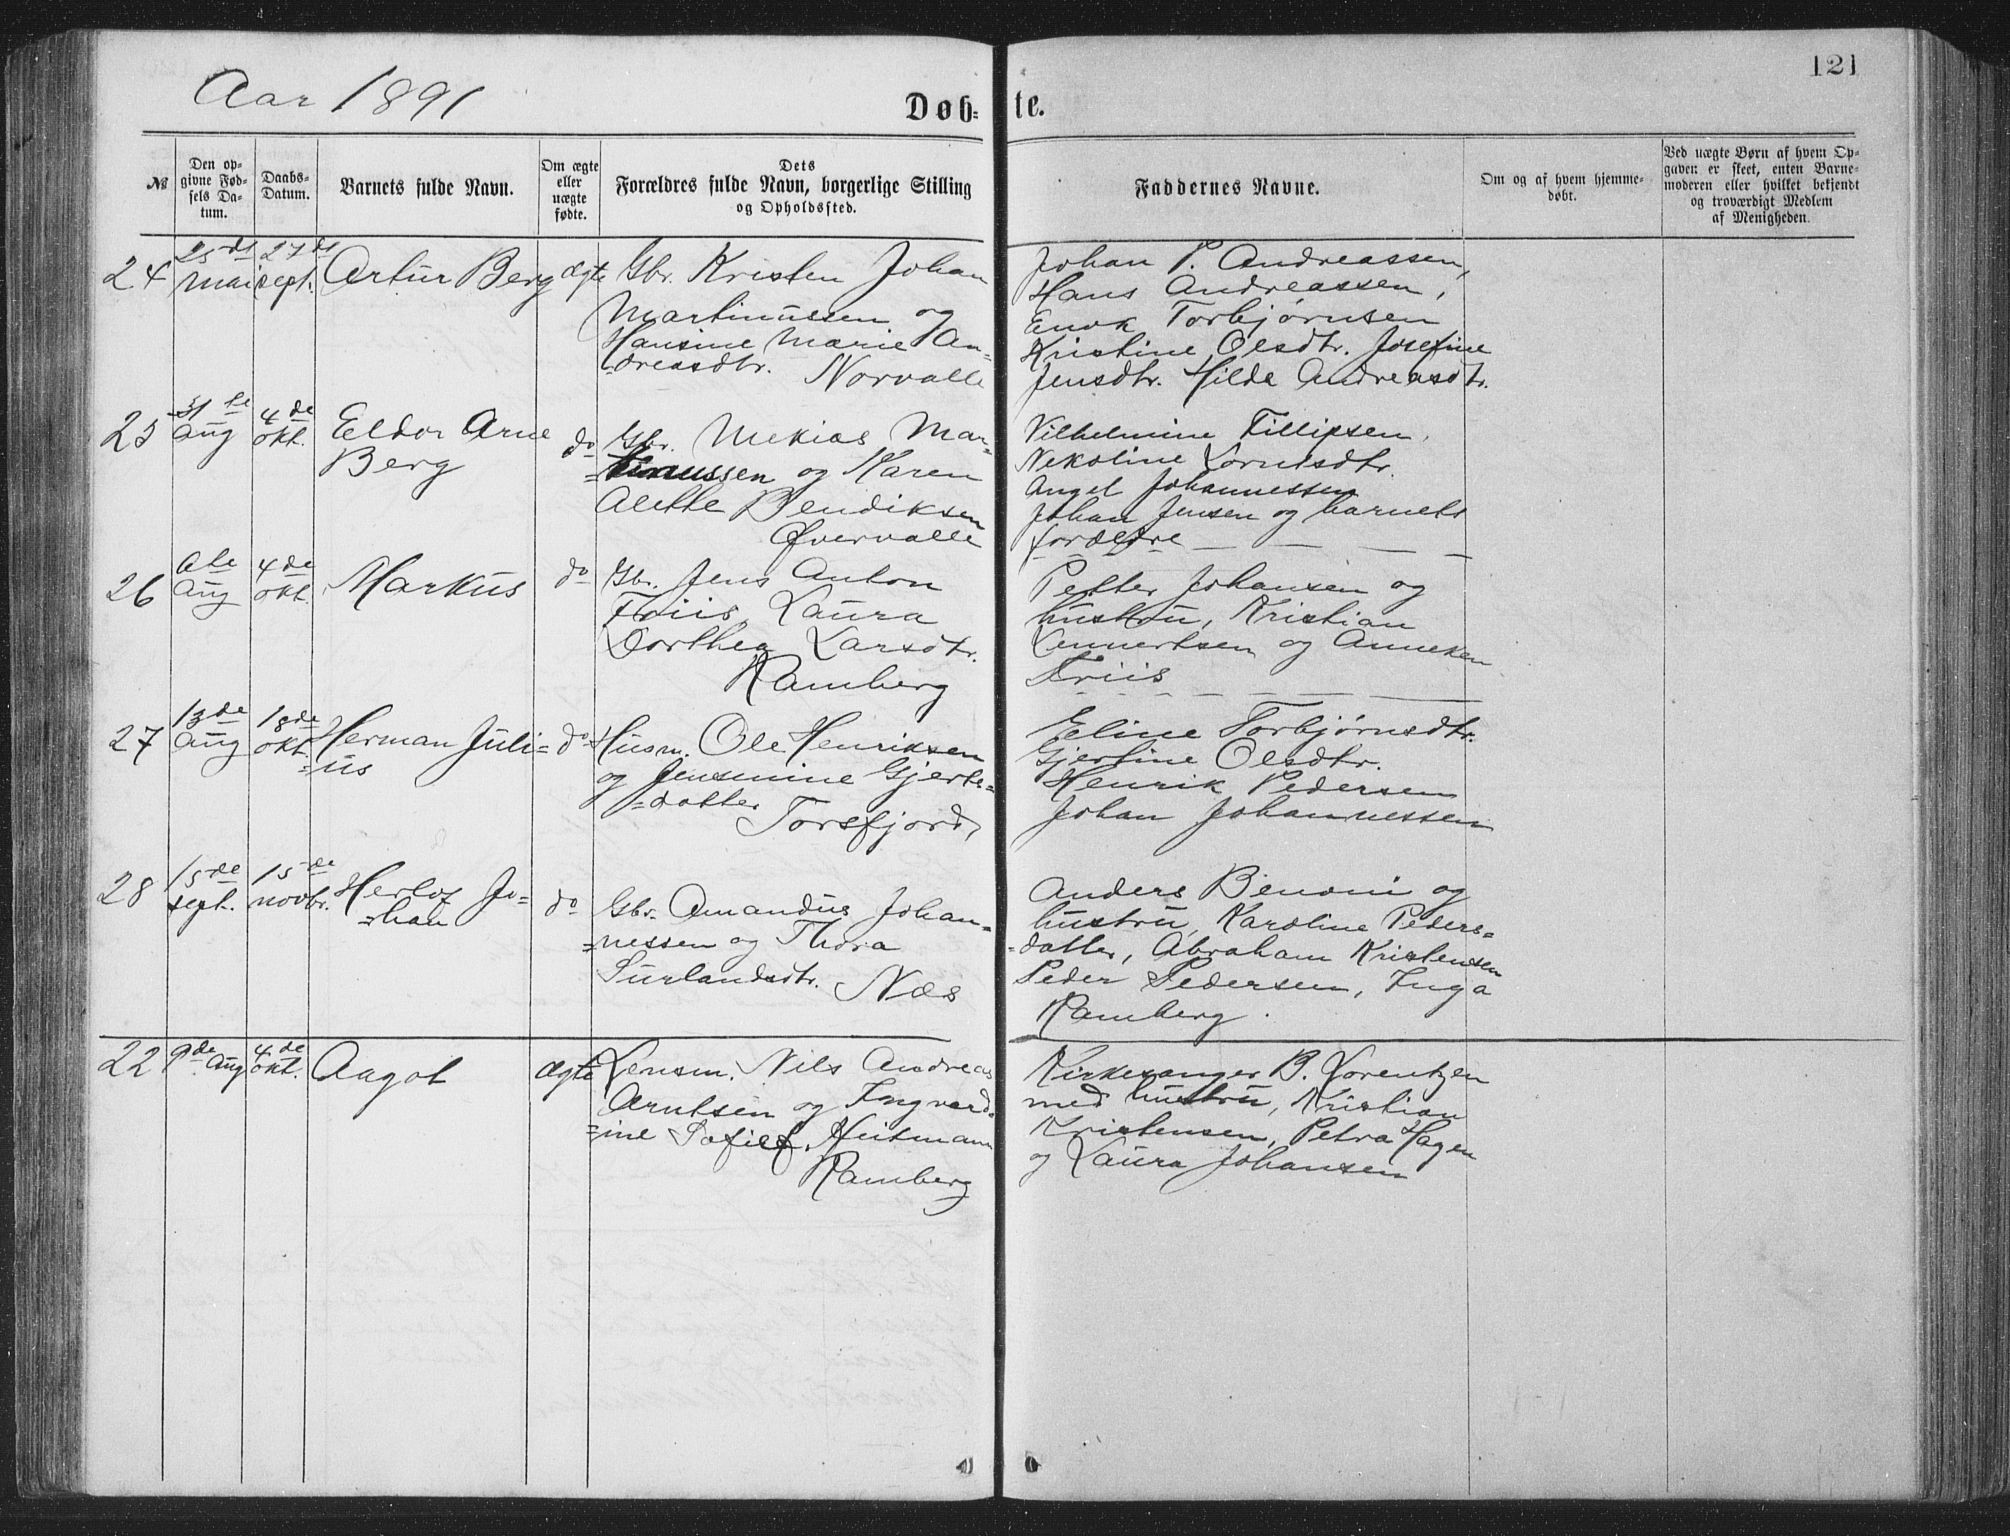 121
Aar 1891
Døb=te.
№
Den op=
givne Fød=
sels Da=
tum.
Daabs=
Datum.
Barnets fulde Navn.
Om ægte
eller
uægte
fødte.
Dets
Forældres fulde Navn, borgerlige Stilling
og Opholdssted.
Faddernes Navne.
Om og af hvem hjemme=
døbt.
Ved uægte Børn af hvem Op=
gaven er skeet, enten Barne=
moderen eller hvilket bekjendt
og troværdigt Medlem
af Menigheden.
24
25de
mai
27de
sept.
Artur Berg
ægte
Gbr. Kristen Johan
Martinussen og
Hansine Marie An=
=dreasdtr. Norvalle
Johan P. Andreassen,
Hans Andreassen,
Enok Torbjørnsen
Kristine Olsdtr. Josefine
Jensdtr. Hilda Andreasdtr.
25
31te
aug
4de
okt.
Eldor Arne
Berg
do
Gbr. Mekias Mar=
=tinussen og Karen
Alette Bendiksen
Øvervalle
Vilhelmine Fillipsen,
Nekoline Lorntsdtr.
Angel Johannessen
Johan Jensen og barnets
forældre
26
6te
Aug
4de
okt.
Markus
do
Gbr. Jens Anton
Friis, Laura
Dorthea Larsdtr.
Ramberg
Petter Johansen og
hustru, Kristian
Lennertsen og Anneken
Friis
27
13de
aug
18de
okt.
Herman Juli=
=us
do
Husm. Ole Henriksen
og Jensmine Gjerts=
=datter
Torsfjord,
Eline Torbjørnsdtr.
Gjertine Olsdtr.
Henrik Pedersen
Johan Johannessen
28
15de
sept.
15de
novbr.
Herlof Jo=
=han
do
Gbr. Amandus Johan=
=nessen og Thora
Surlandsdtr. Næs
Anders Benoni og
hustru, Karoline Peders=
=datter, Abraham Kristensen
Peder Pedersen, Inga
Ramberg.
22
9de aug
4de
okt.
Aagot
ægte
Lensm. Nils Andreas
Arntsen og Ingvard=
=ine Sofie f. Heitmann
Ramberg
Kirkesanger B. Lorentzen
med hustru, Kristian
Kristensen, Petra Hagen
og Laura Johansen